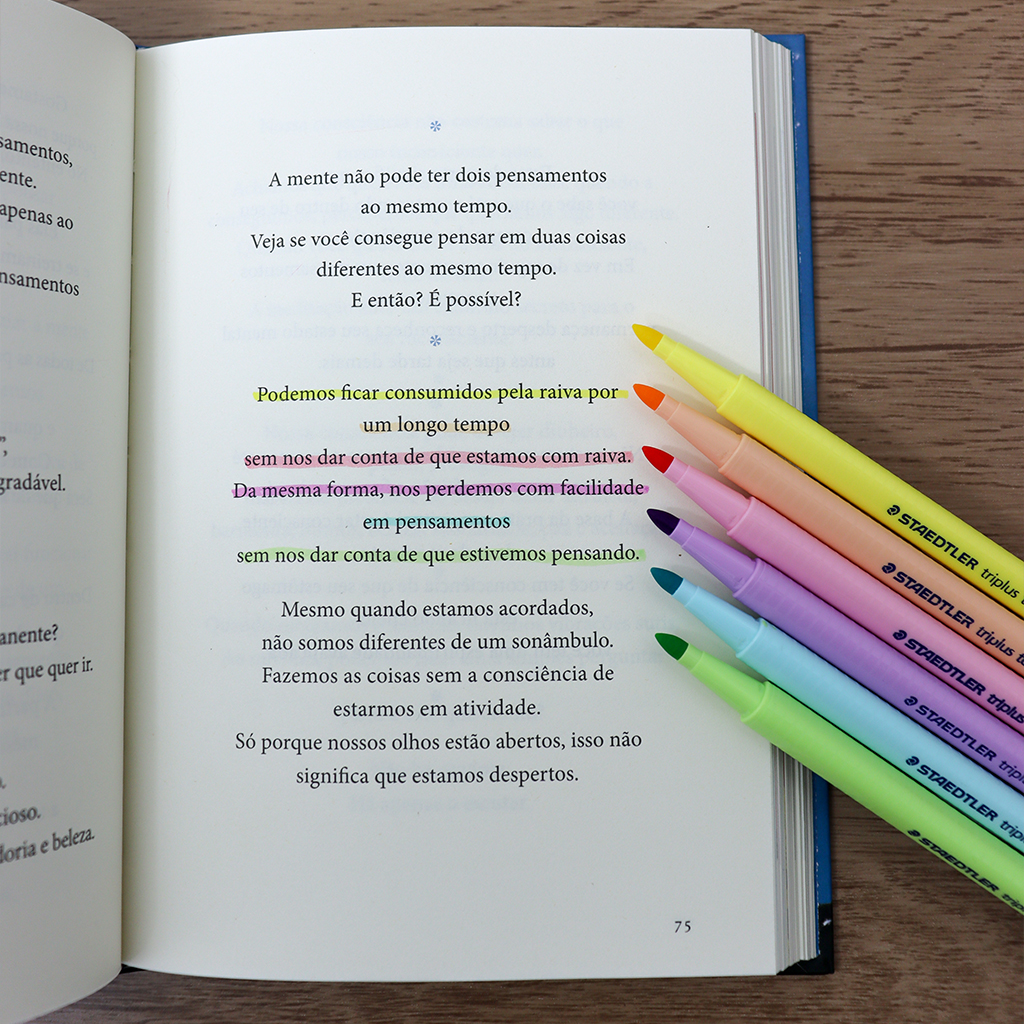 samentos,
ente.
apenas ao
nsamentos
”,
gradável.
anente?
er que quer ir.
cioso.
doria e beleza.
*
A mente não pode ter dois pensamentos
ao mesmo tempo.
Veja se você consegue pensar em duas coisas
diferentes ao mesmo tempo.
E então? É possível?
*
Podemos ficar consumidos pela raiva por
um longo tempo
sem nos dar conta de que estamos com raiva.
Da mesma forma, nos perdemos com facilidade
em pensamentos
sem nos dar conta de que estivemos pensando.
Mesmo quando estamos acordados,
não somos diferentes de um sonâmbulo.
Fazemos as coisas sem a consciência de
estarmos em atividade.
Só porque nossos olhos estão abertos, isso não
significa que estamos despertos.
75
STAEDTLER triplus
STAEDTLER triplus
STAEDTLER triplus
STAEDTLER triplus
STAEDTLER triplus
STAEDTLER trip